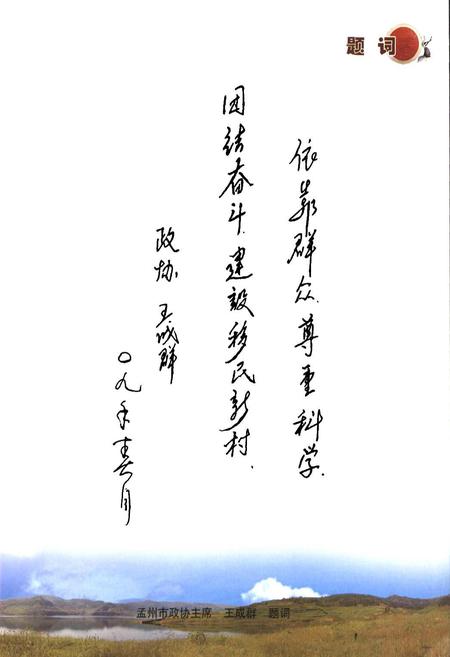 题词
依靠群众.尊重科学.
团结奋斗.建设移民新村.
政协 王成群
〇九年 月
孟州市政协主席 王成群 题词